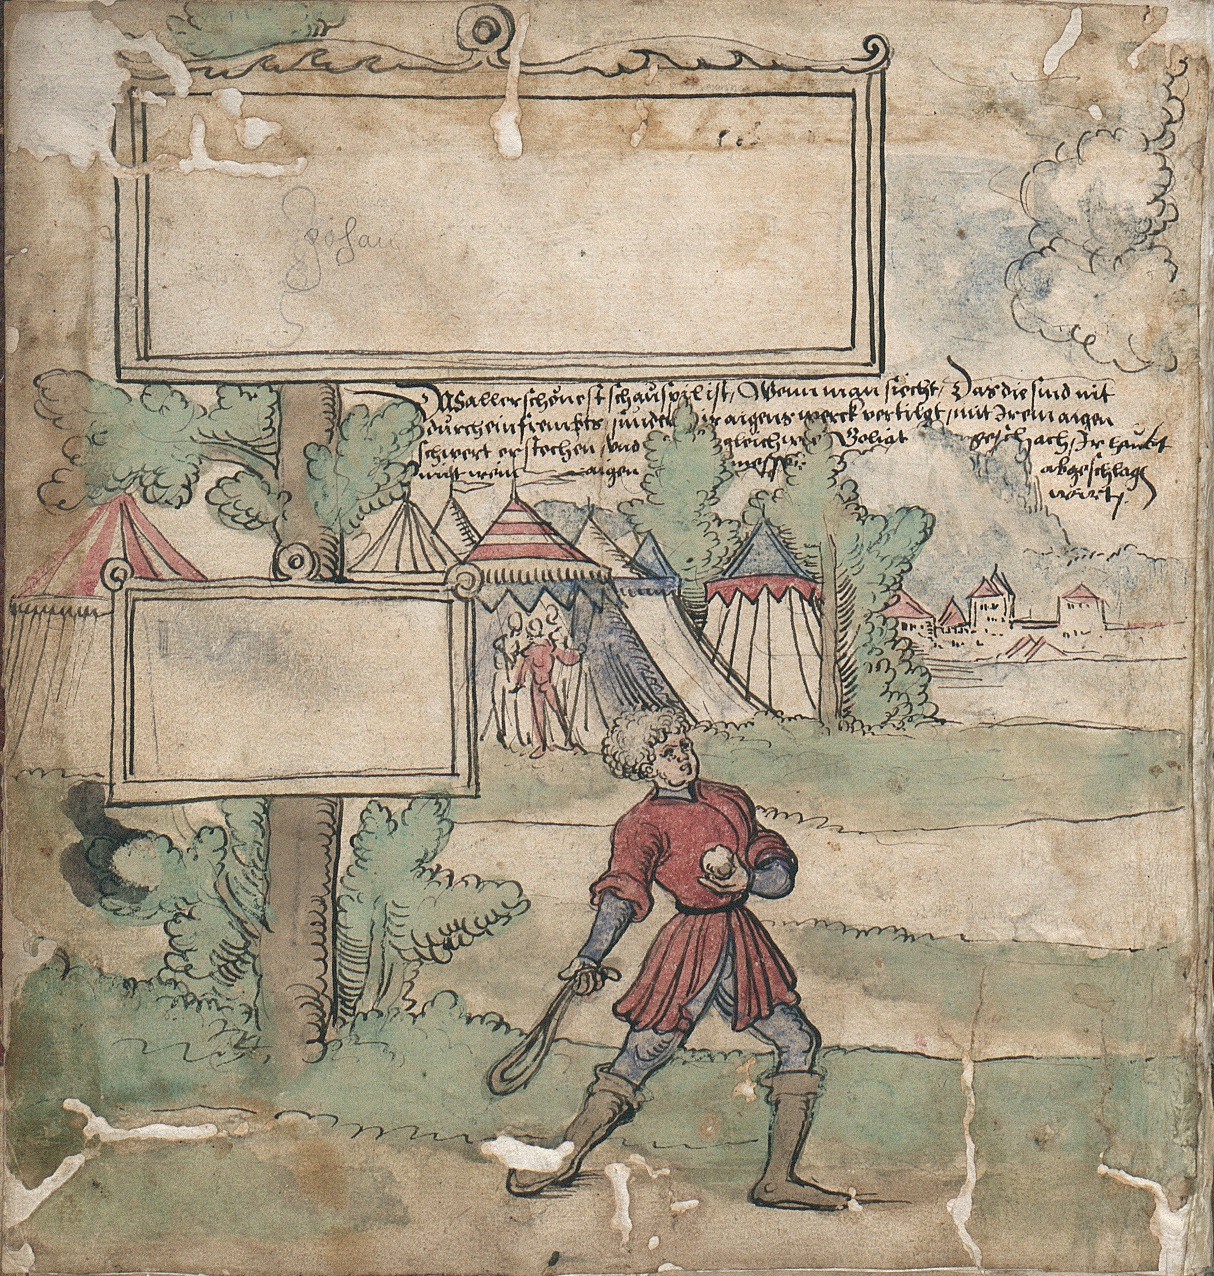 Das aller schönest schauspil ist, Wenn man siecht, Das die sind nit
durch ein frembts, sunder ir aigens werck vertilgt, mit Irem aigen
schwert erstochen, und gleich wie Goliat geschach, Ir haubt
mit irem aigen messer abgeschlagen
wirt.